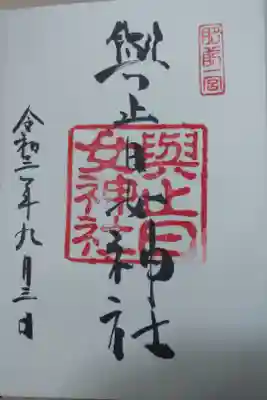 肥前一宮
與止日女神社
與止日
女神社
令和二年九月三日